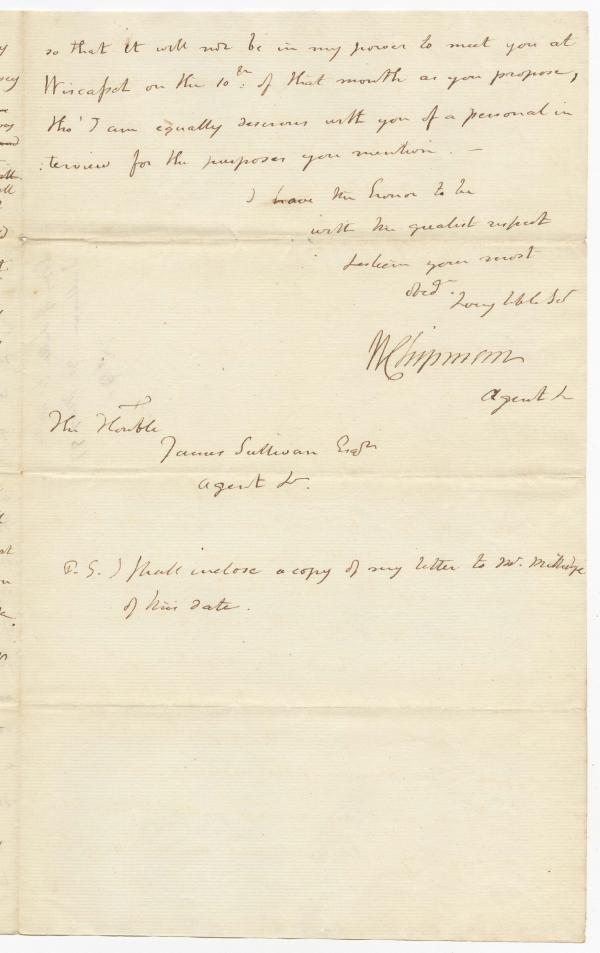 so that it will not be in my power to meet you at
Wiscasset on the 10th. of that month as you propose,
tho' I am equally desirous with you of a personal in
:terview for the purposes you mention. —
I have the honor to be
with the greatest respect
& esteem your most
obed. & very hble Svt
W Chipman
Agent &c
The Honble
James Sullivan Esqr
Agent &c.
P. S. I shall inclose a copy of my letter to Mr. Millidge
of this date.